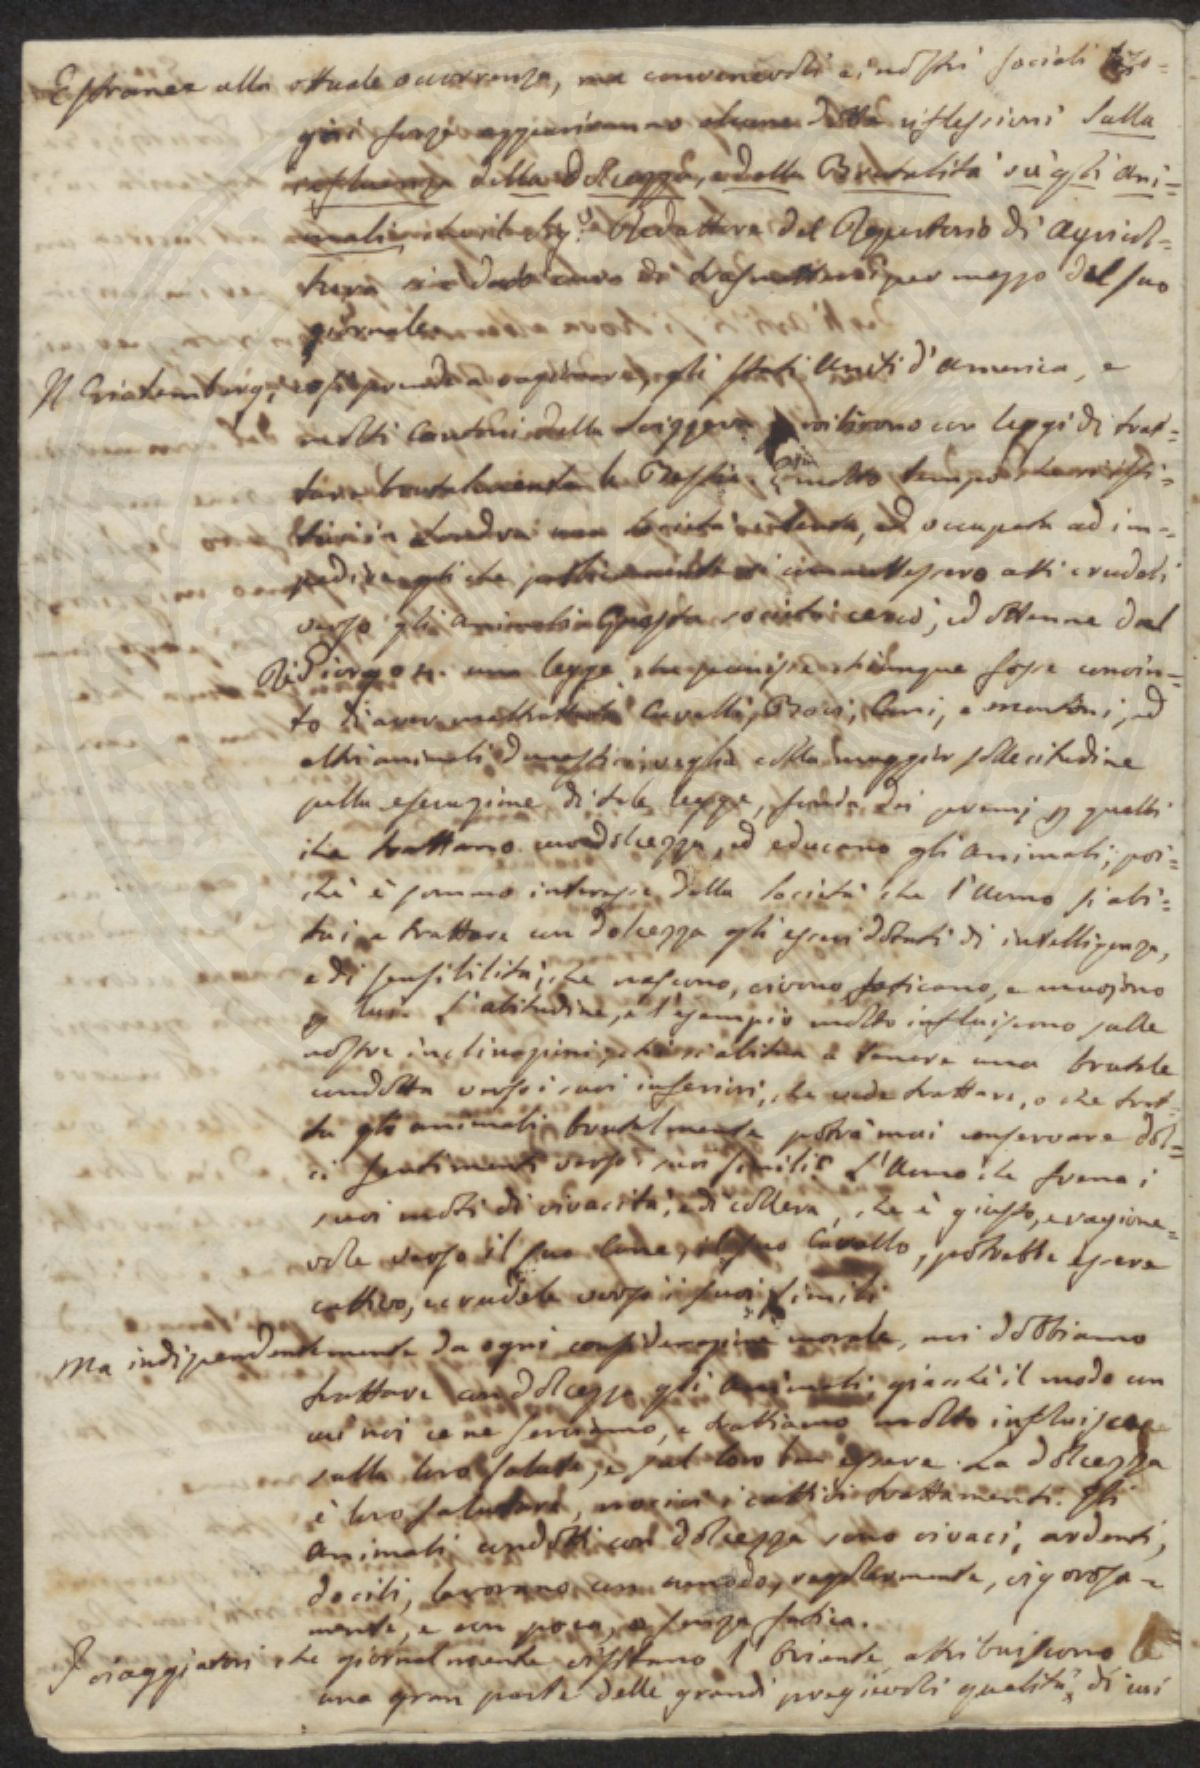 Estranee alla attuale occorrenza, ma convenevoli ai nostri sociali biso=
gni forse appariranno alcune dotte riflessioni sulla
influenza della dolcezza, e della Brutalità su gli Ani=
mali che il Sig.e Redattore del Repertorio di Agricol=
tura si è dato cura di trasmetterci per mezzo del suo
giornale.
Il Wirtemberg, così prende a ragionare, gli stati Uniti d'America, e
molti Cantoni della Svizzera proibirono con leggi di trat=
tare brutalmente le Bestie. È molto tempo che
in Londra una società, ed occupata ad im=
pedire quei che pubblicamente commettessero atti crudeli
verso gli animali. Questa società cercò, ed ottenne dal
Rè Giorgo 4. una legge che punisse chiunque fosse convin=
to di aver maltrattato Cavalli, Bovi, Cani, e montoni, ed
altri animali domestici, veglia colla maggior sollecitudine
sulla esecuzione di tale legge, fonda dei premj p quelli
che trattano con dolcezza, ed educano gli animali; poi=
chè è sommo interesse della società che l'Uomo si abi=
tui a trattare con dolcezza gli esseri dotati di intelligenza,
e di sensibilità, che nascono, vivono faticano, e muojono
p lui. L'abitudine, e l'esempio molto influiscono sulle
nostre inclinazioni, chi si abitua a tenere una brutale
condotta verso i suoi inferiori, che vede trattare, o che trat=
ta gli animali brutalmente potrà mai conservare dol=
ci sentimenti verso i suoi simili? L'Uomo che frena i
suoi moti di vivacità, e di collera, che è giusto, e ragione=
vole verso il suo Cane, il suo Cavallo, potrebbe essere
cattivo, e crudele verso i suoi simili
Ma indipendentemente da ogni considerazione morale, noi dobbiamo
trattare con dolcezza gli animali, giacchè il modo con
cui noi ce ne serviamo, e trattiamo molto influisce
sulla loro salute, e sul loro ben essere. La dolcezza
è loro salutare, nocivi i cattivi trattamenti. Gli
animali condotti con dolcezza sono vivaci, ardenti,
docili, lavorano con comodo, regolarmente, vigorosa=
mente, e con poca, o senza fatica.
I viaggiatori che giornalmente visitano l'Oriente attribuiscono a
una gran parte delle grandi pregievoli qualità, di cui